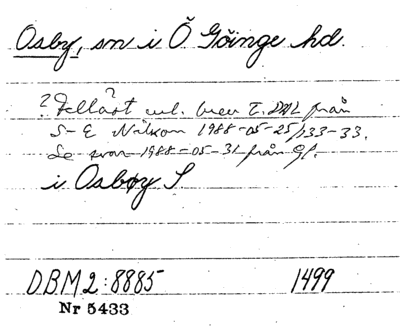 Osby, sn i Ö Göinge hd.
? Felläst enl. brev t. DAL från
S-E Nilsson 1988-05-25/133-33.
Se svar 1988-05-31 från
i Osboy S.
DBM 2:8885 1499
Nr 5433